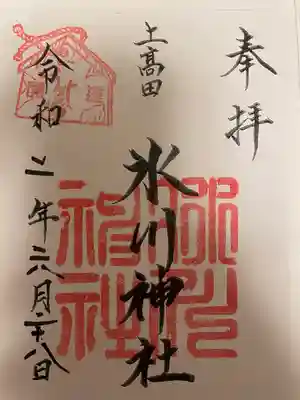 奉拝
上高田
氷川神社
令和二年六月二十八日
氷川
神社